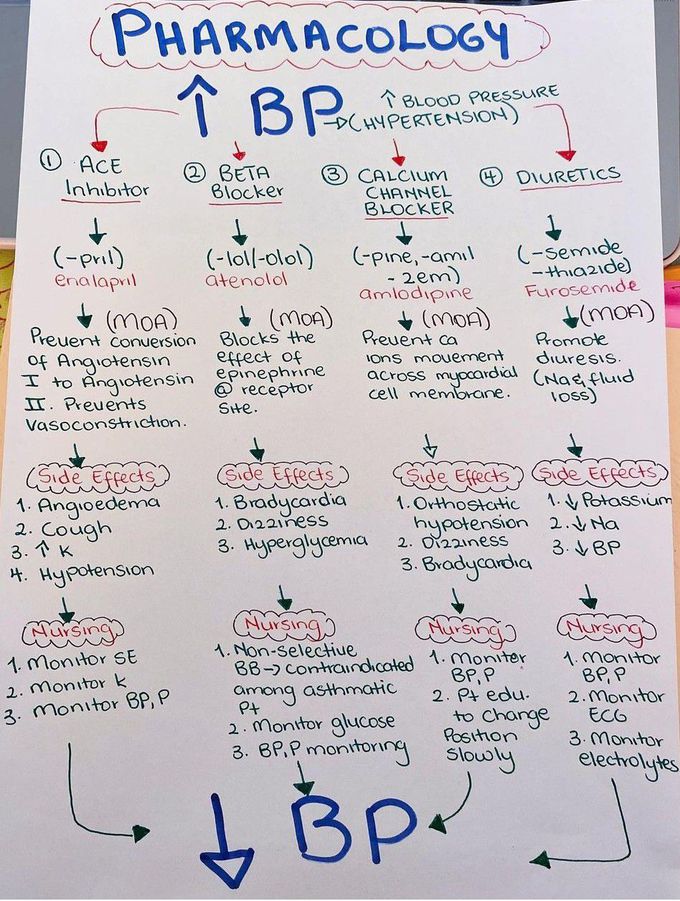 PHARMACOLOGY
↑ BP
↑ BLOOD PRESSURE
→(HYPERTENSION)
① ACE
Inhibitor
(-pril)
enalapril
(MOA)
Prevent conversion
of Angiotensin
I to Angiotensin
II. Prevents
Vasoconstriction.
Side Effects
1. Angioedema
2. Cough
3. ↑ K
4. Hypotension
Nursing
1. Monitor SE
2. Monitor K
3. Monitor BP, P
② BETA
Blocker
(-lol/-olol)
atenolol
(MOA)
Blocks the
effect of
epinephrine
@ receptor
site.
Side Effects
1. Bradycardia
2. Dizziness
3. Hyperglycemia
Nursing
1. Non-selective
BB→contraindicated
among asthmatic
Pt
2. Monitor glucose
3. BP, P monitoring
③ CALCIUM
CHANNEL
BLOCKER
(-pine, -amil
-zem)
amlodipine
(MOA)
Prevent ca
ions movement
across myocardial
cell membrane.
Side Effects
1. Orthostatic
hypotension
2. Dizziness
3. Bradycardia
Nursing
1. Monitor
BP, P
2. Pt edu.
to change
Position
Slowly
④ DIURETICS
(-semide
-thiazide)
Furosemide
(MOA)
Promote
diuresis.
(Na & fluid
loss)
Side Effects
1. ↓ Potassium
2. ↓ Na
3. ↓ BP
Nursing
1. Monitor
BP, P
2. Monitor
ECG
3. Monitor
electrolytes
↓ BP